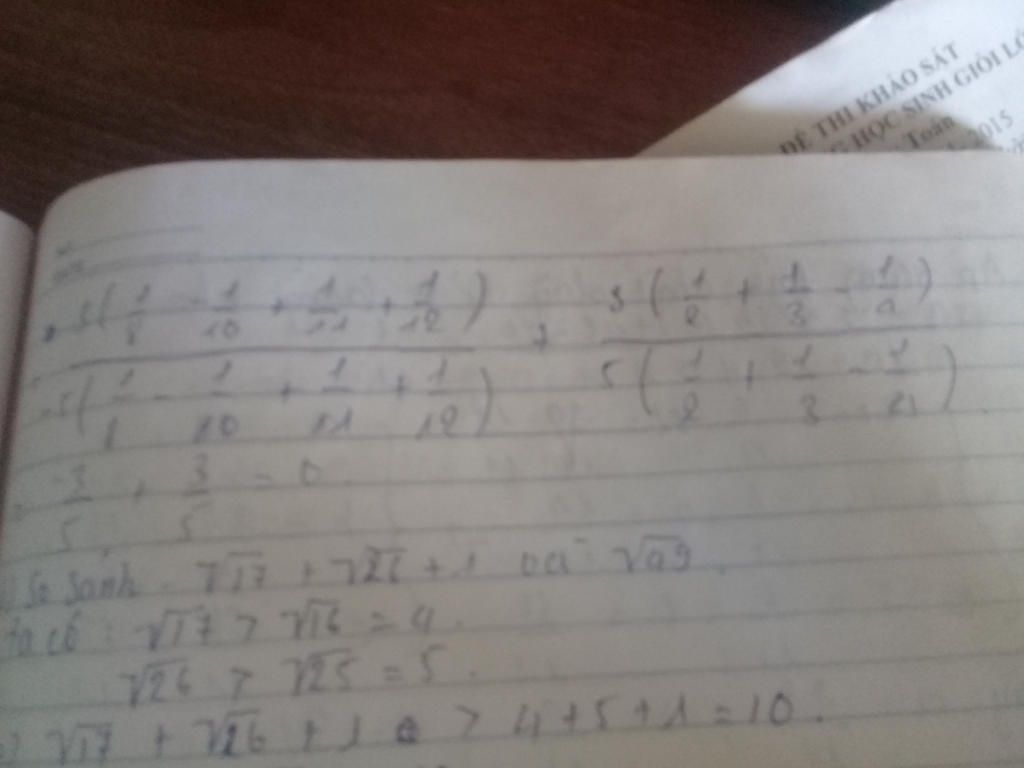 ĐỀ THI KHẢO SÁT
HỌC SINH GIỎI
Toán
2015
3(1/8 - 1/10 + 1/11 + 1/12) / -5(1/8 - 1/10 + 1/11 + 1/12) + 3(1/2 + 1/3 - 1/4) / 5(1/2 + 1/3 - 1/4)
-3/5 + 3/5 = 0.
So sánh √17 + √26 + 1 và √99.
ta có: √17 > √16 = 4.
√26 > √25 = 5.
=> √17 + √26 + 1 > 4 + 5 + 1 = 10.